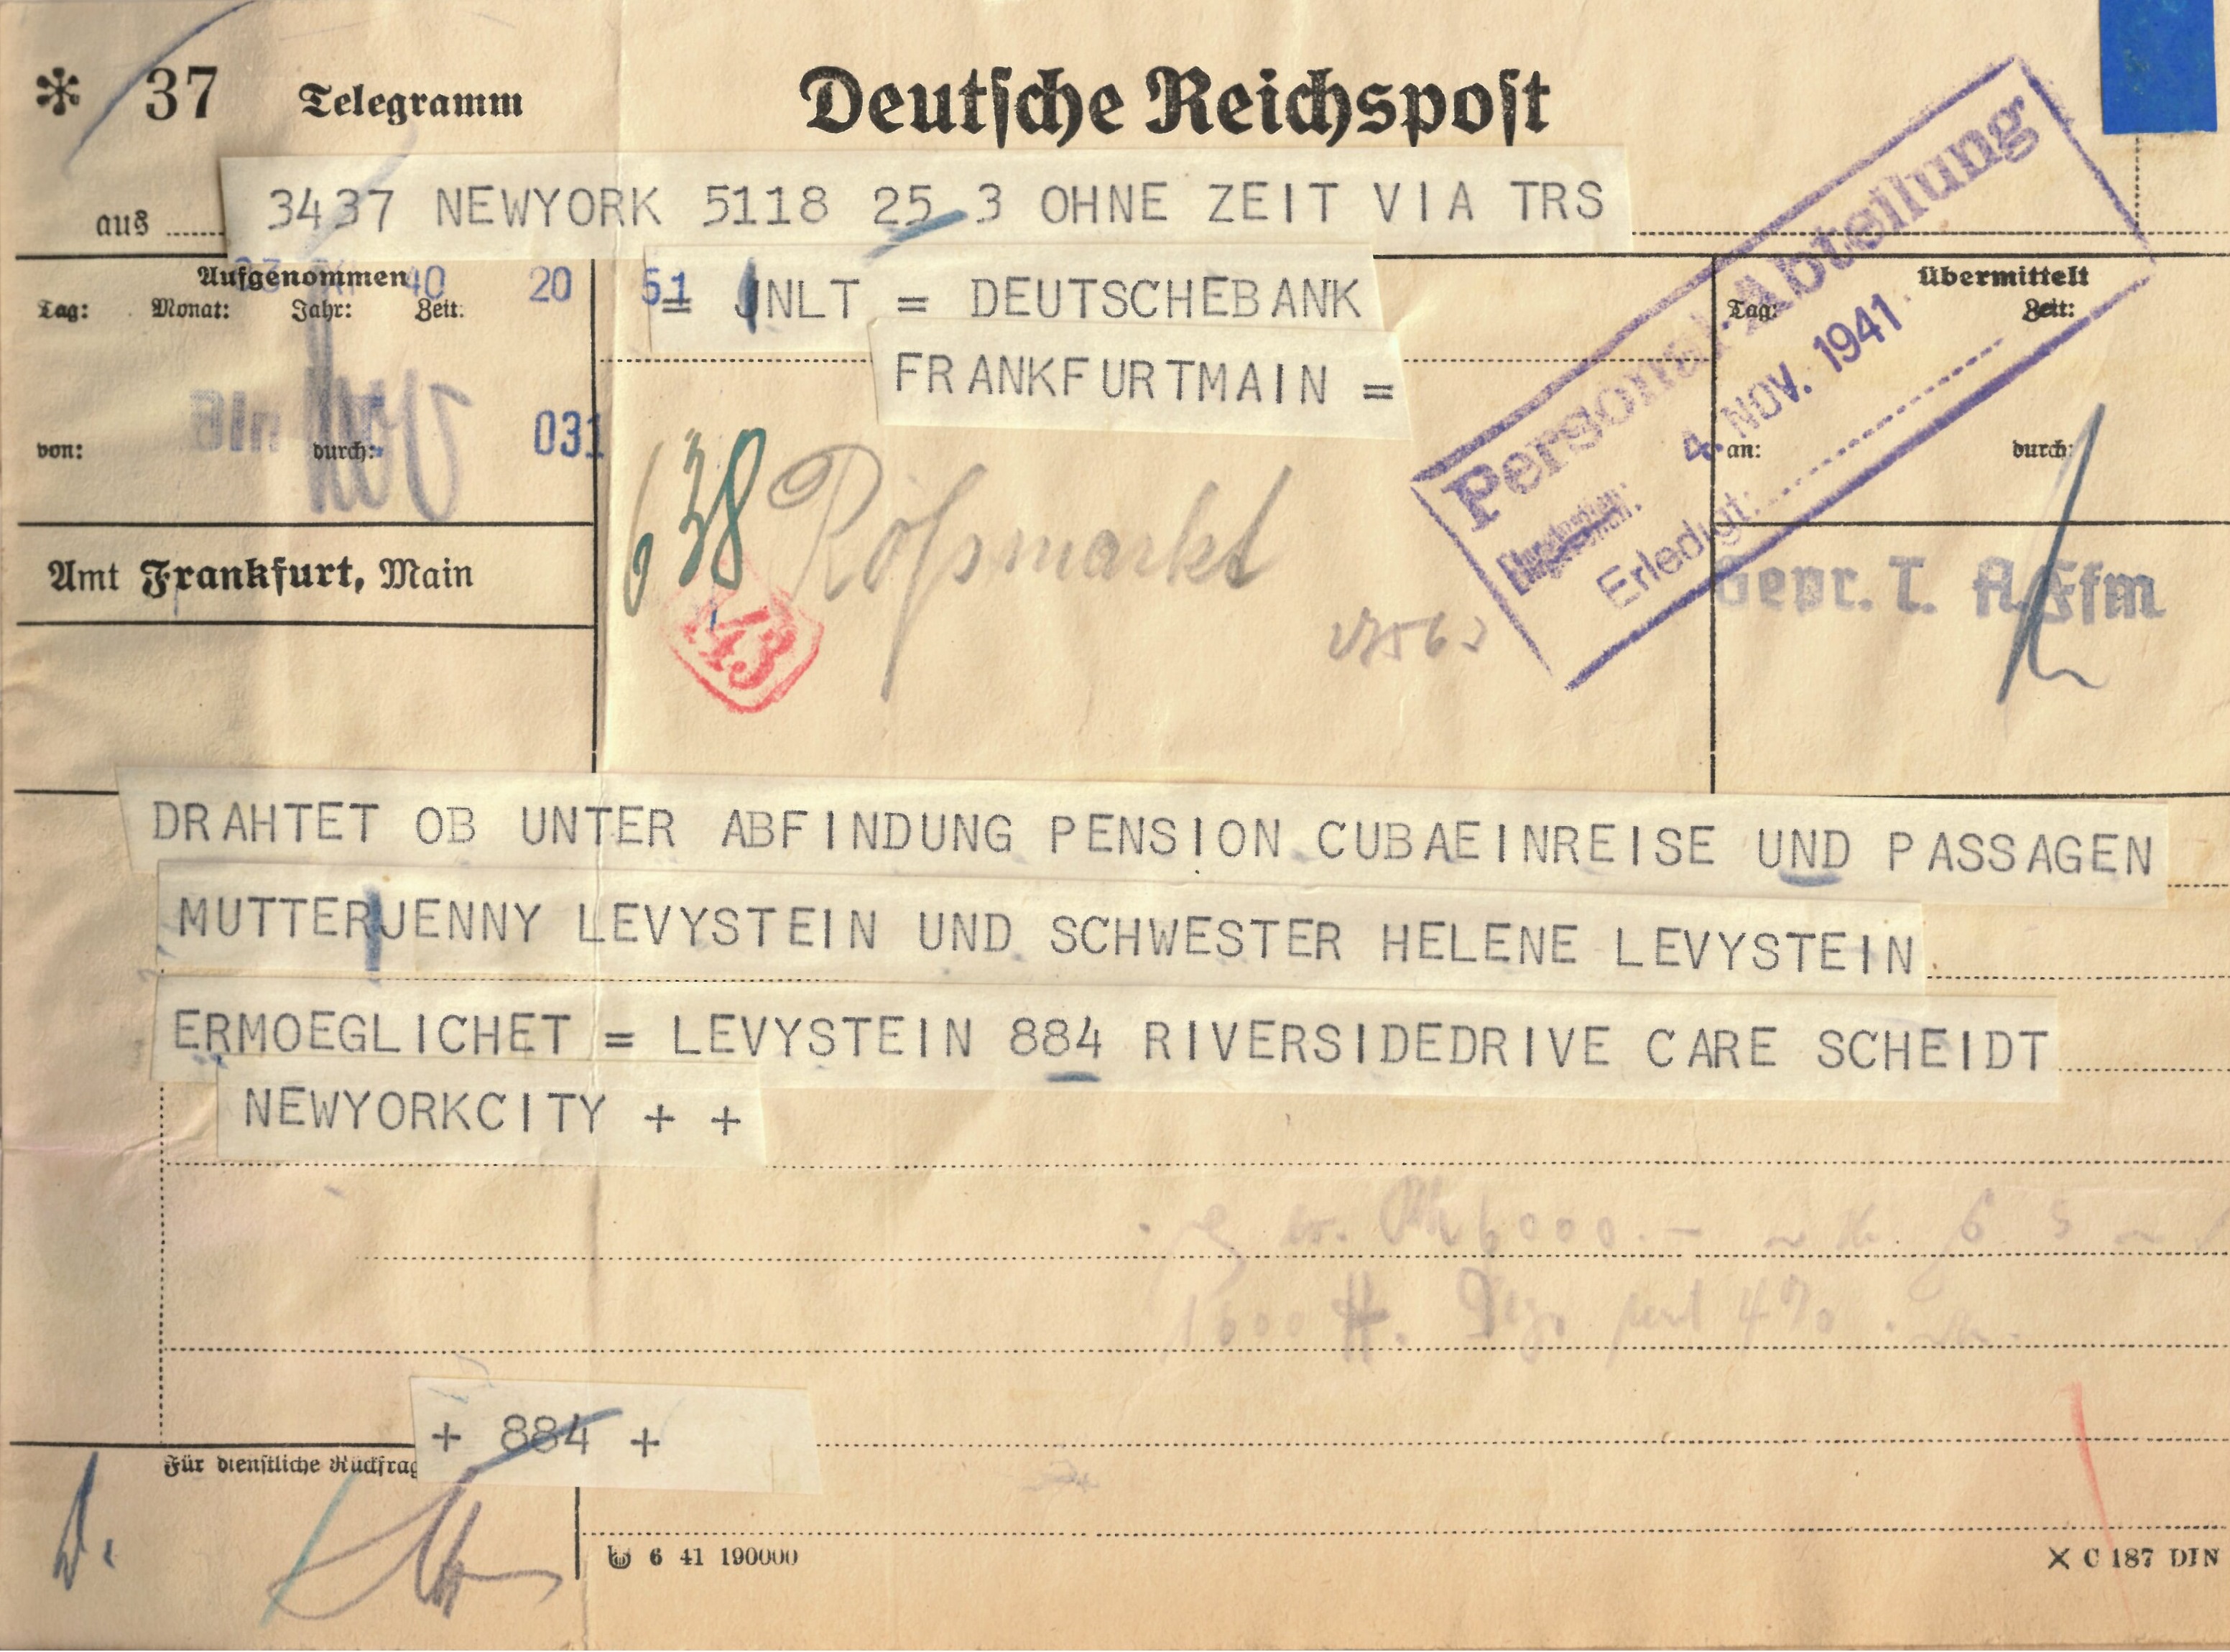 * 37 Telegramm Deutsche Reichspost
aus 3437 NEWYORK 5118 25 3 OHNE ZEIT VIA TRS
Aufgenommen
Tag: Monat: Jahr: Zeit:
40 20 51
= JNLT = DEUTSCHEBANK
FRANKFURTMAIN =
von: durch: 031
Amt Frankfurt, Main
638 Roßmarkt
143
Personal-Abteilung
4. NOV. 1941
Erledigt:
Übermittelt
Tag: Zeit:
an: durch:
Gepr. T. A. Ffm
DRAHTET OB UNTER ABFINDUNG PENSION CUBAEINREISE UND PASSAGEN
MUTTER JENNY LEVYSTEIN UND SCHWESTER HELENE LEVYSTEIN
ERMOEGLICHET = LEVYSTEIN 884 RIVERSIDEDRIVE CARE SCHEIDT
NEWYORKCITY + +
6000.-
1600
+ 884 +
Für dienstliche Rückfrag
6 41 190000
C 187 DIN